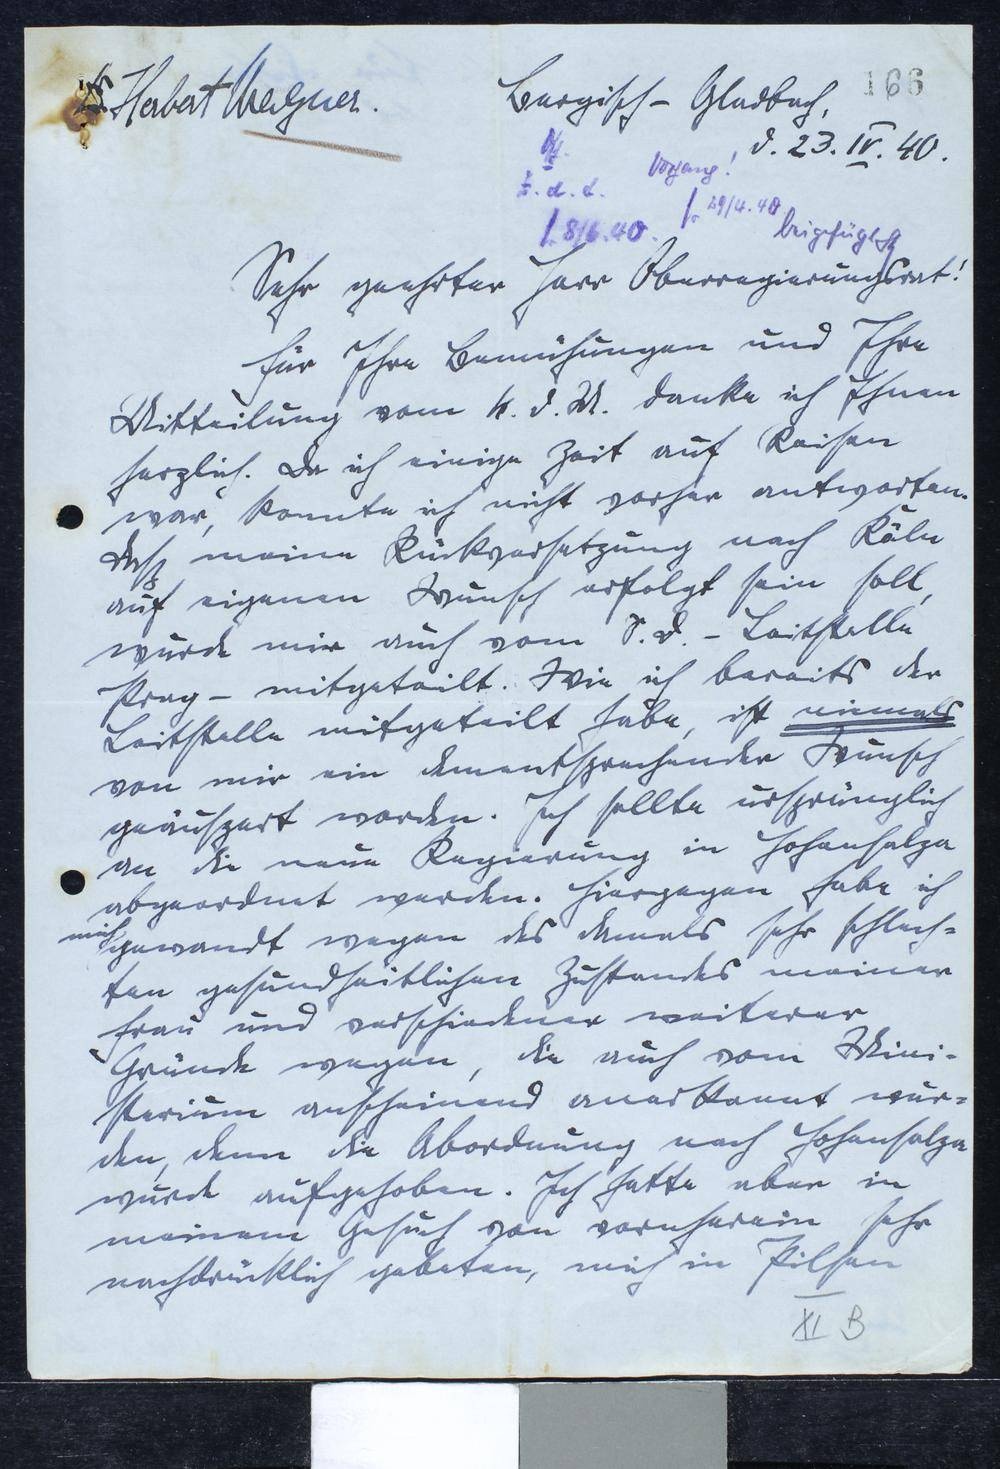 Dr. Herbert Wegner.
166
Bergisch-Gladbach,
d. 23. IV. 40.
Vorgang!
z. d. A.
29/4.40
8/6.40.
beigefügt
Sehr geehrter Herr Oberregierungsrat!
Für Ihre Bemühungen und Ihre
Mitteilung vom 4. d. M. danke ich Ihnen
herzlich. Da ich einige Zeit auf Reisen
war, konnte ich nicht vorher antworten.
Daß meine Rückversetzung nach Köln
auf eigenen Wunsch erfolgt sein soll,
wurde mir auch vom S. D. - Leitstelle
Prag - mitgeteilt. Wie ich bereits der
Leitstelle mitgeteilt habe, ist niemals
von mir ein dementsprechender Wunsch
geäußert worden. Ich sollte ursprünglich
an die neue Regierung in Hohensalza
abgeordnet werden. Hiergegen habe ich
mich gewandt wegen des damals sehr schlech=
ten gesundheitlichen Zustandes meiner
Frau und verschiedener weiterer
Gründe wegen, die auch vom Mini-
sterium anscheinend anerkannt wur=
den, denn die Abordnung nach Hohensalza
wurde aufgehoben. Ich hatte aber in
meinem Gesuch von vornherein sehr
nachdrücklich gebeten, mich in Pilsen
XI B